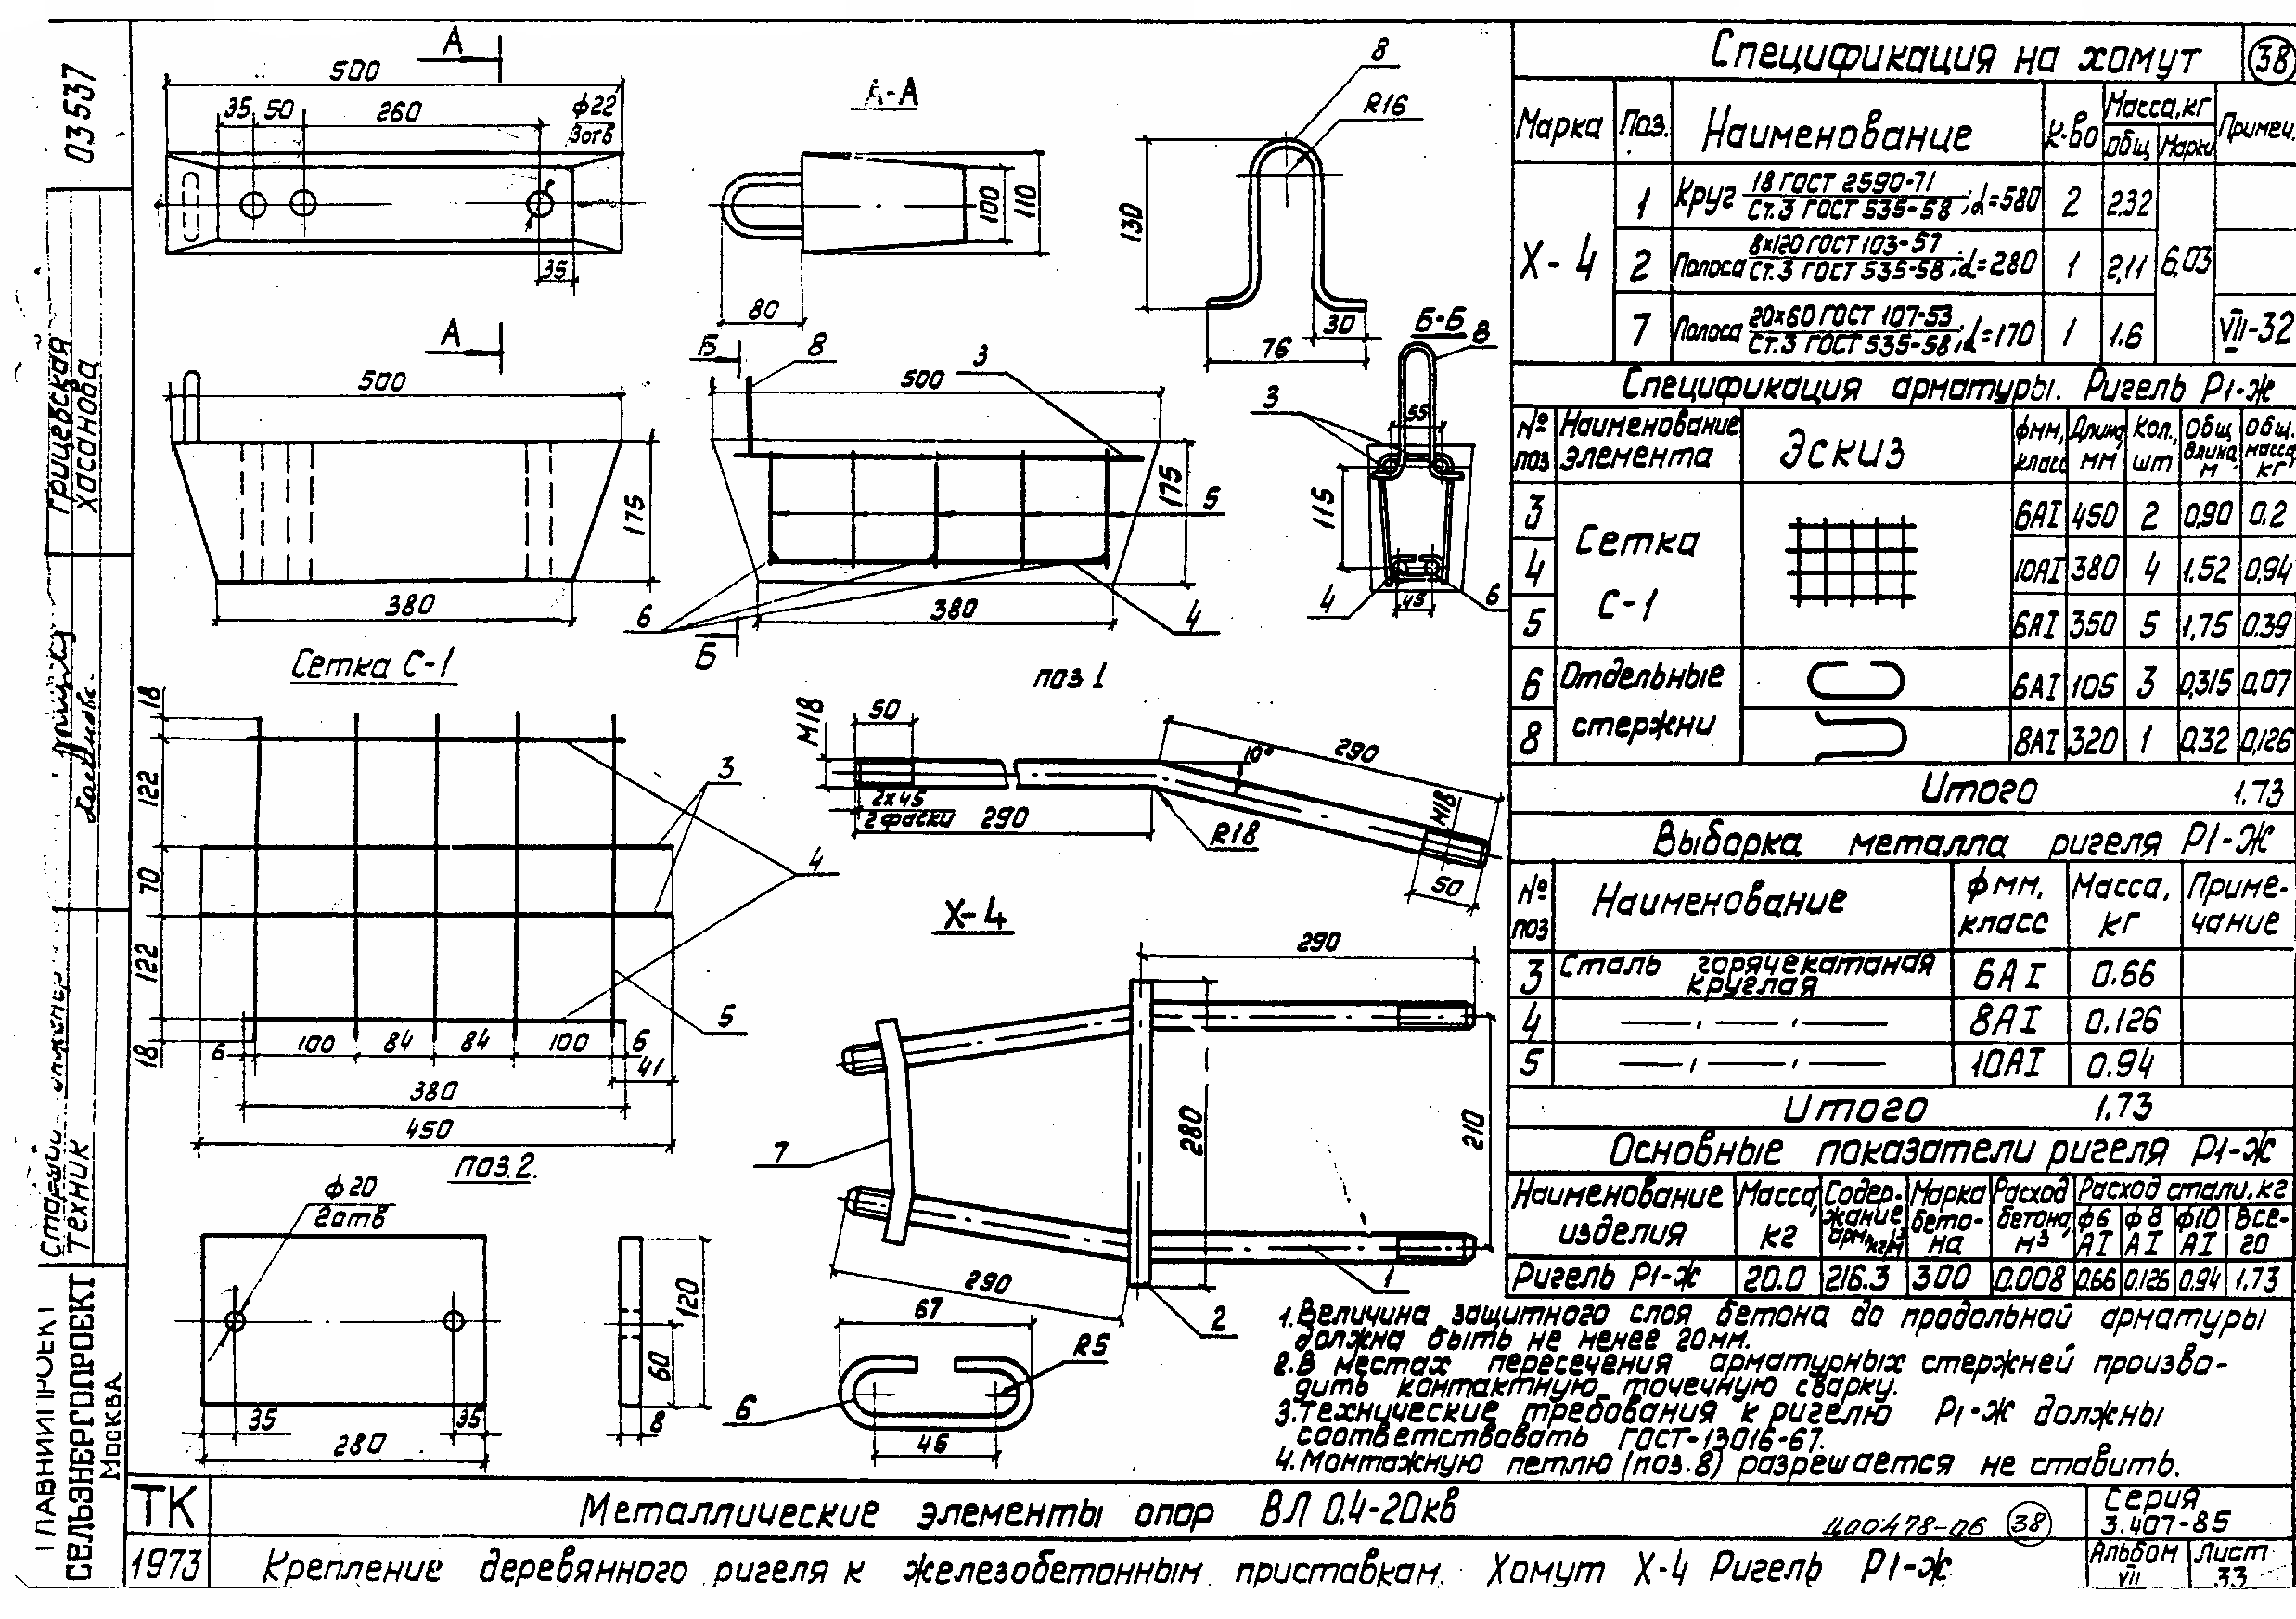 03537
Грицевская
Хасанова
Техник
СЕЛЬЭНЕРГОПРОЕКТ
Москва
А
500
35 50 260
ф22
3отв
35
А-А
100
110
80
8
R16
130
30
76
А
500
175
380
Б
8
3
500
175
5
6
380
4
Б
Б-Б
8
3
55
115
4
45
6
Сетка С-1
18
122
70
122
18
3
4
5
6 100 84 84 100 6
41
380
450
поз 1
М18
50
10°
290
2х45
2 фаски
290
R18
М18
50
Х-4
290
280
210
7
290
1
2
поз.2.
ф20
2отв
35
35
280
120
60
8
67
R5
6
46
Спецификация на хомут
38
Марка Поз. Наименование К-во Масса,кг Примеч.
Общ Марки
Х-4
1 Круг 18 ГОСТ 2590-71 / Ст.3 ГОСТ 535-58 ;d=580 2 2,32
2 Полоса 8х120 ГОСТ 103-57 / Ст.3 ГОСТ 535-58 ;d=280 1 2,11 6,03
7 Полоса 20х60 ГОСТ 107-53 / Ст.3 ГОСТ 535-58 ;d=170 1 1.6 VII-32
Спецификация арматуры. Ригель Р1-Ж
№ поз Наименование элемента Эскиз фмм, класс Длина, мм Кол., шт Общ длина, м Общ. масса кг
3 Сетка С-1 6АI 450 2 0,90 0.2
4 10АI 380 4 1.52 0,94
5 6АI 350 5 1,75 0.39
6 Отдельные стержни 6АI 105 3 0,315 0,07
8 8АI 320 1 0.32 0,126
Итого 1.73
Выборка металла ригеля Р1-Ж
№ поз Наименование фмм, класс Масса, кг Примечание
3 Сталь горячекатаная круглая 6АI 0.66
4 8АI 0.126
5 10АI 0.94
Итого 1.73
Основные показатели ригеля Р1-Ж
Наименование изделия Масса, кг Содержание арм., кг/м³ Марка бетона Расход бетона, м³ Расход стали, кг
ф6 АI ф8 АI ф10 АI Всего
Ригель Р1-Ж 20.0 216.3 300 0.008 0.66 0.126 0.94 1.73
1.Величина защитного слоя бетона до продольной арматуры
должна быть не менее 20мм.
2.В местах пересечения арматурных стержней произво-
дить контактную точечную сварку.
3.Технические требования к ригелю Р1-Ж должны
соответствовать ГОСТ-13016-67.
4.Монтажную петлю (поз.8) разрешается не ставить.
ТК
1973
Металлические элементы опор ВЛ 0.4-20кв
Крепление деревянного ригеля к железобетонным приставкам. Хомут Х-4 Ригель Р1-Ж
38
Серия
3.407-85
Альбом
VII
Лист
33